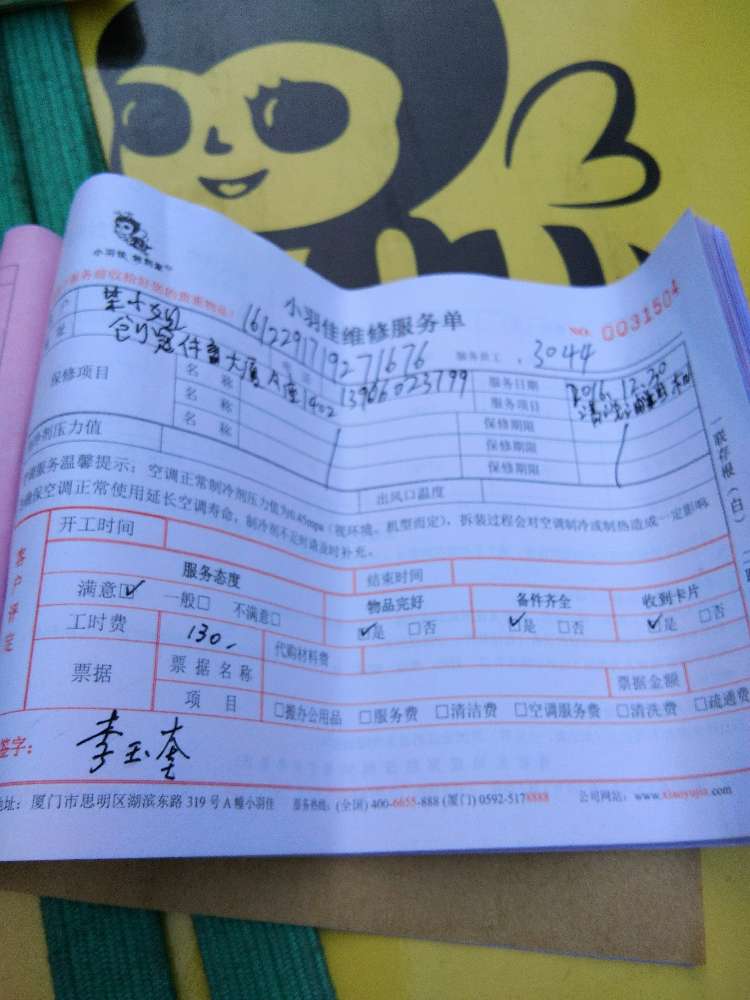 小羽佳
小羽佳维修服务单
NO. 0031504
161229171927 1676
服务员工: 3044
创冠
大厦A座1402
13906023799
服务日期
2016.12.20
保修项目
名称
服务项目
名称
保修期限
名称
保修期限
保修期限
剂压力值
出风口温度
服务温馨提示:空调正常制冷剂压力值为0.45mpa(视环境、机型而定),拆装过程会对空调制冷或制热造成一定影响
确保空调正常使用延长空调寿命,制冷剂不足时请及时补充。
一联存根(白)
客户评定
开工时间
结束时间
服务态度
物品完好
备件齐全
收到卡片
满意☑ 一般□ 不满意□
☑是 □否
☑是 □否
☑是 □否
工时费
130.
代购材料费
票据
票据名称
票据金额
项目
□搬办公用品 □服务费 □清洁费 □空调服务费 □清洗费 □疏通费
签字:
李玉奎
地址:厦门市思明区湖滨东路319号A幢小羽佳 服务热线:(全国)400-6655-888 (厦门)0592-5178888 公司网站:www.xiaoyujia.com